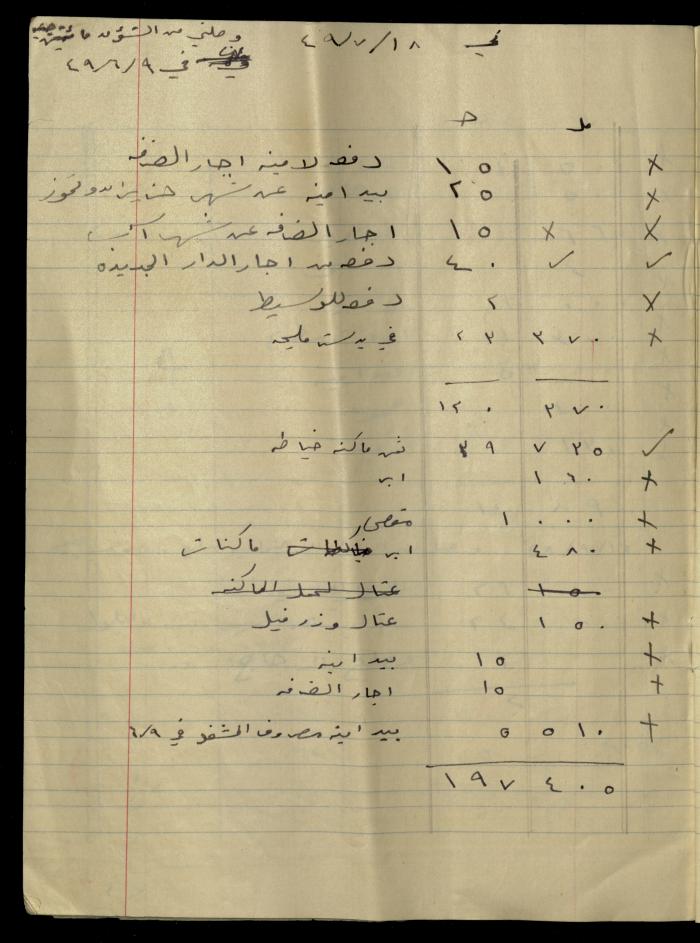 في ١٨/٧/٤٩ وصلني من الشؤون
في ٩/٦/٤٩
مل ج
x ١٥ دفعه لامينه اجار الغرفه
x ٢٥ بيد امينه عن شهر حزيران وتموز
x x ١٥ اجار الغرفه عن شهر آب
✓ ✓ ٤٠ دفعه من اجار الدار الجديده
x ٢ دفعه للوسيط
x ٣٧٠ ٢٣ في يد ست مليحه
٣٧٠ ١٢٠
✓ ٧٣٥ ٣٩ ثمن ماكنه خياطه
+ ١٦٠ ابر
+ ٠٠٠ ١ مقص
+ ٤٨٠ ابر ماكنات
١٥٠ عتال لحمل الماكنه
+ ١٥٠ عتال وزرفيل
+ ١٥ بيد امينه
+ ١٥ اجار الغرفه
+ ٥١٠ ٥ بيد امينه مصروف المشغل في ٦/٩
٤٠٥ ١٩٧